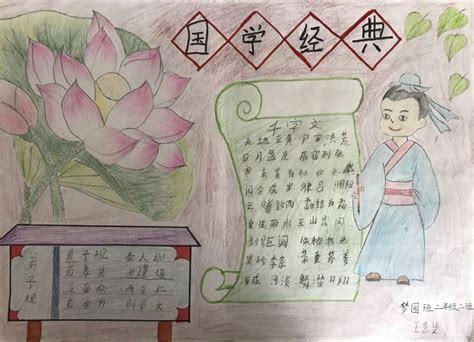 国学经典
千字文
天地玄黄 宇宙洪荒
日月盈昃 辰宿列张
寒来暑往 秋收冬藏
闰余成岁 律吕调阳
云腾致雨 露结为霜
金生丽水 玉出昆冈
剑号巨阙
果珍李柰 菜重芥姜
海咸 河淡 鳞潜羽翔
弟子规
弟子规 圣人训
首孝弟 次谨信
泛爱众 而亲仁
有余力 则学文
梦园班二年级二班
王艺